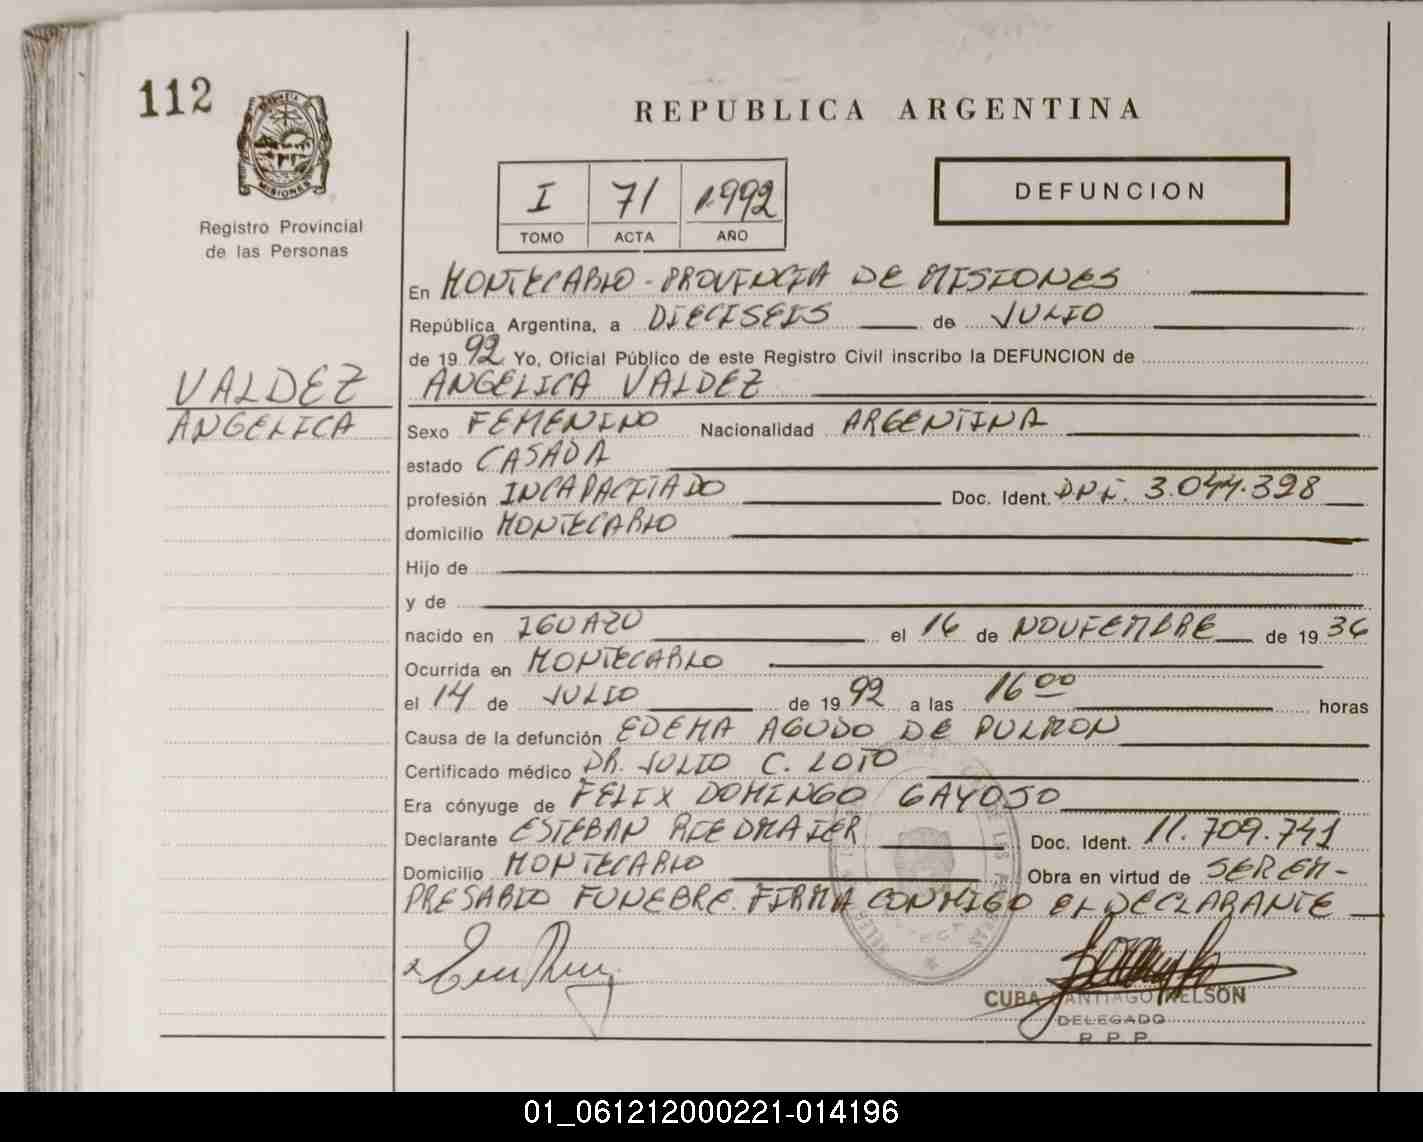 112
MISIONES
Registro Provincial
de las Personas
REPUBLICA ARGENTINA
I 71 1992
TOMO ACTA AÑO
DEFUNCION
En MONTECARLO - PROVINCIA DE MISIONES
República Argentina, a DIECISEIS de JULIO
de 1992 Yo, Oficial Público de este Registro Civil inscribo la DEFUNCION de
VALDEZ
ANGELICA
ANGELICA VALDEZ
Sexo FEMENINO Nacionalidad ARGENTINA
estado CASADA
profesión INCAPACITADO Doc. Ident. DNI. 3.044.398
domicilio MONTECARLO
Hijo de
y de
nacido en IGUAZU el 16 de NOVIEMBRE de 1936
Ocurrida en MONTECARLO
el 14 de JULIO de 1992 a las 16 00 horas
Causa de la defunción EDEMA AGUDO DE PULMON
Certificado médico DR. JULIO C. LOTO
Era cónyuge de FELIX DOMINGO GAYOSO
Declarante ESTEBAN RIEDMAIER Doc. Ident. 11.709.741
Domicilio MONTECARLO Obra en virtud de SER EM-
PRESARIO FUNEBRE. FIRMA CONMIGO EL DECLARANTE
CUBA SANTIAGO NELSON
DELEGADO
R. P. P.
01_061212000221-014196